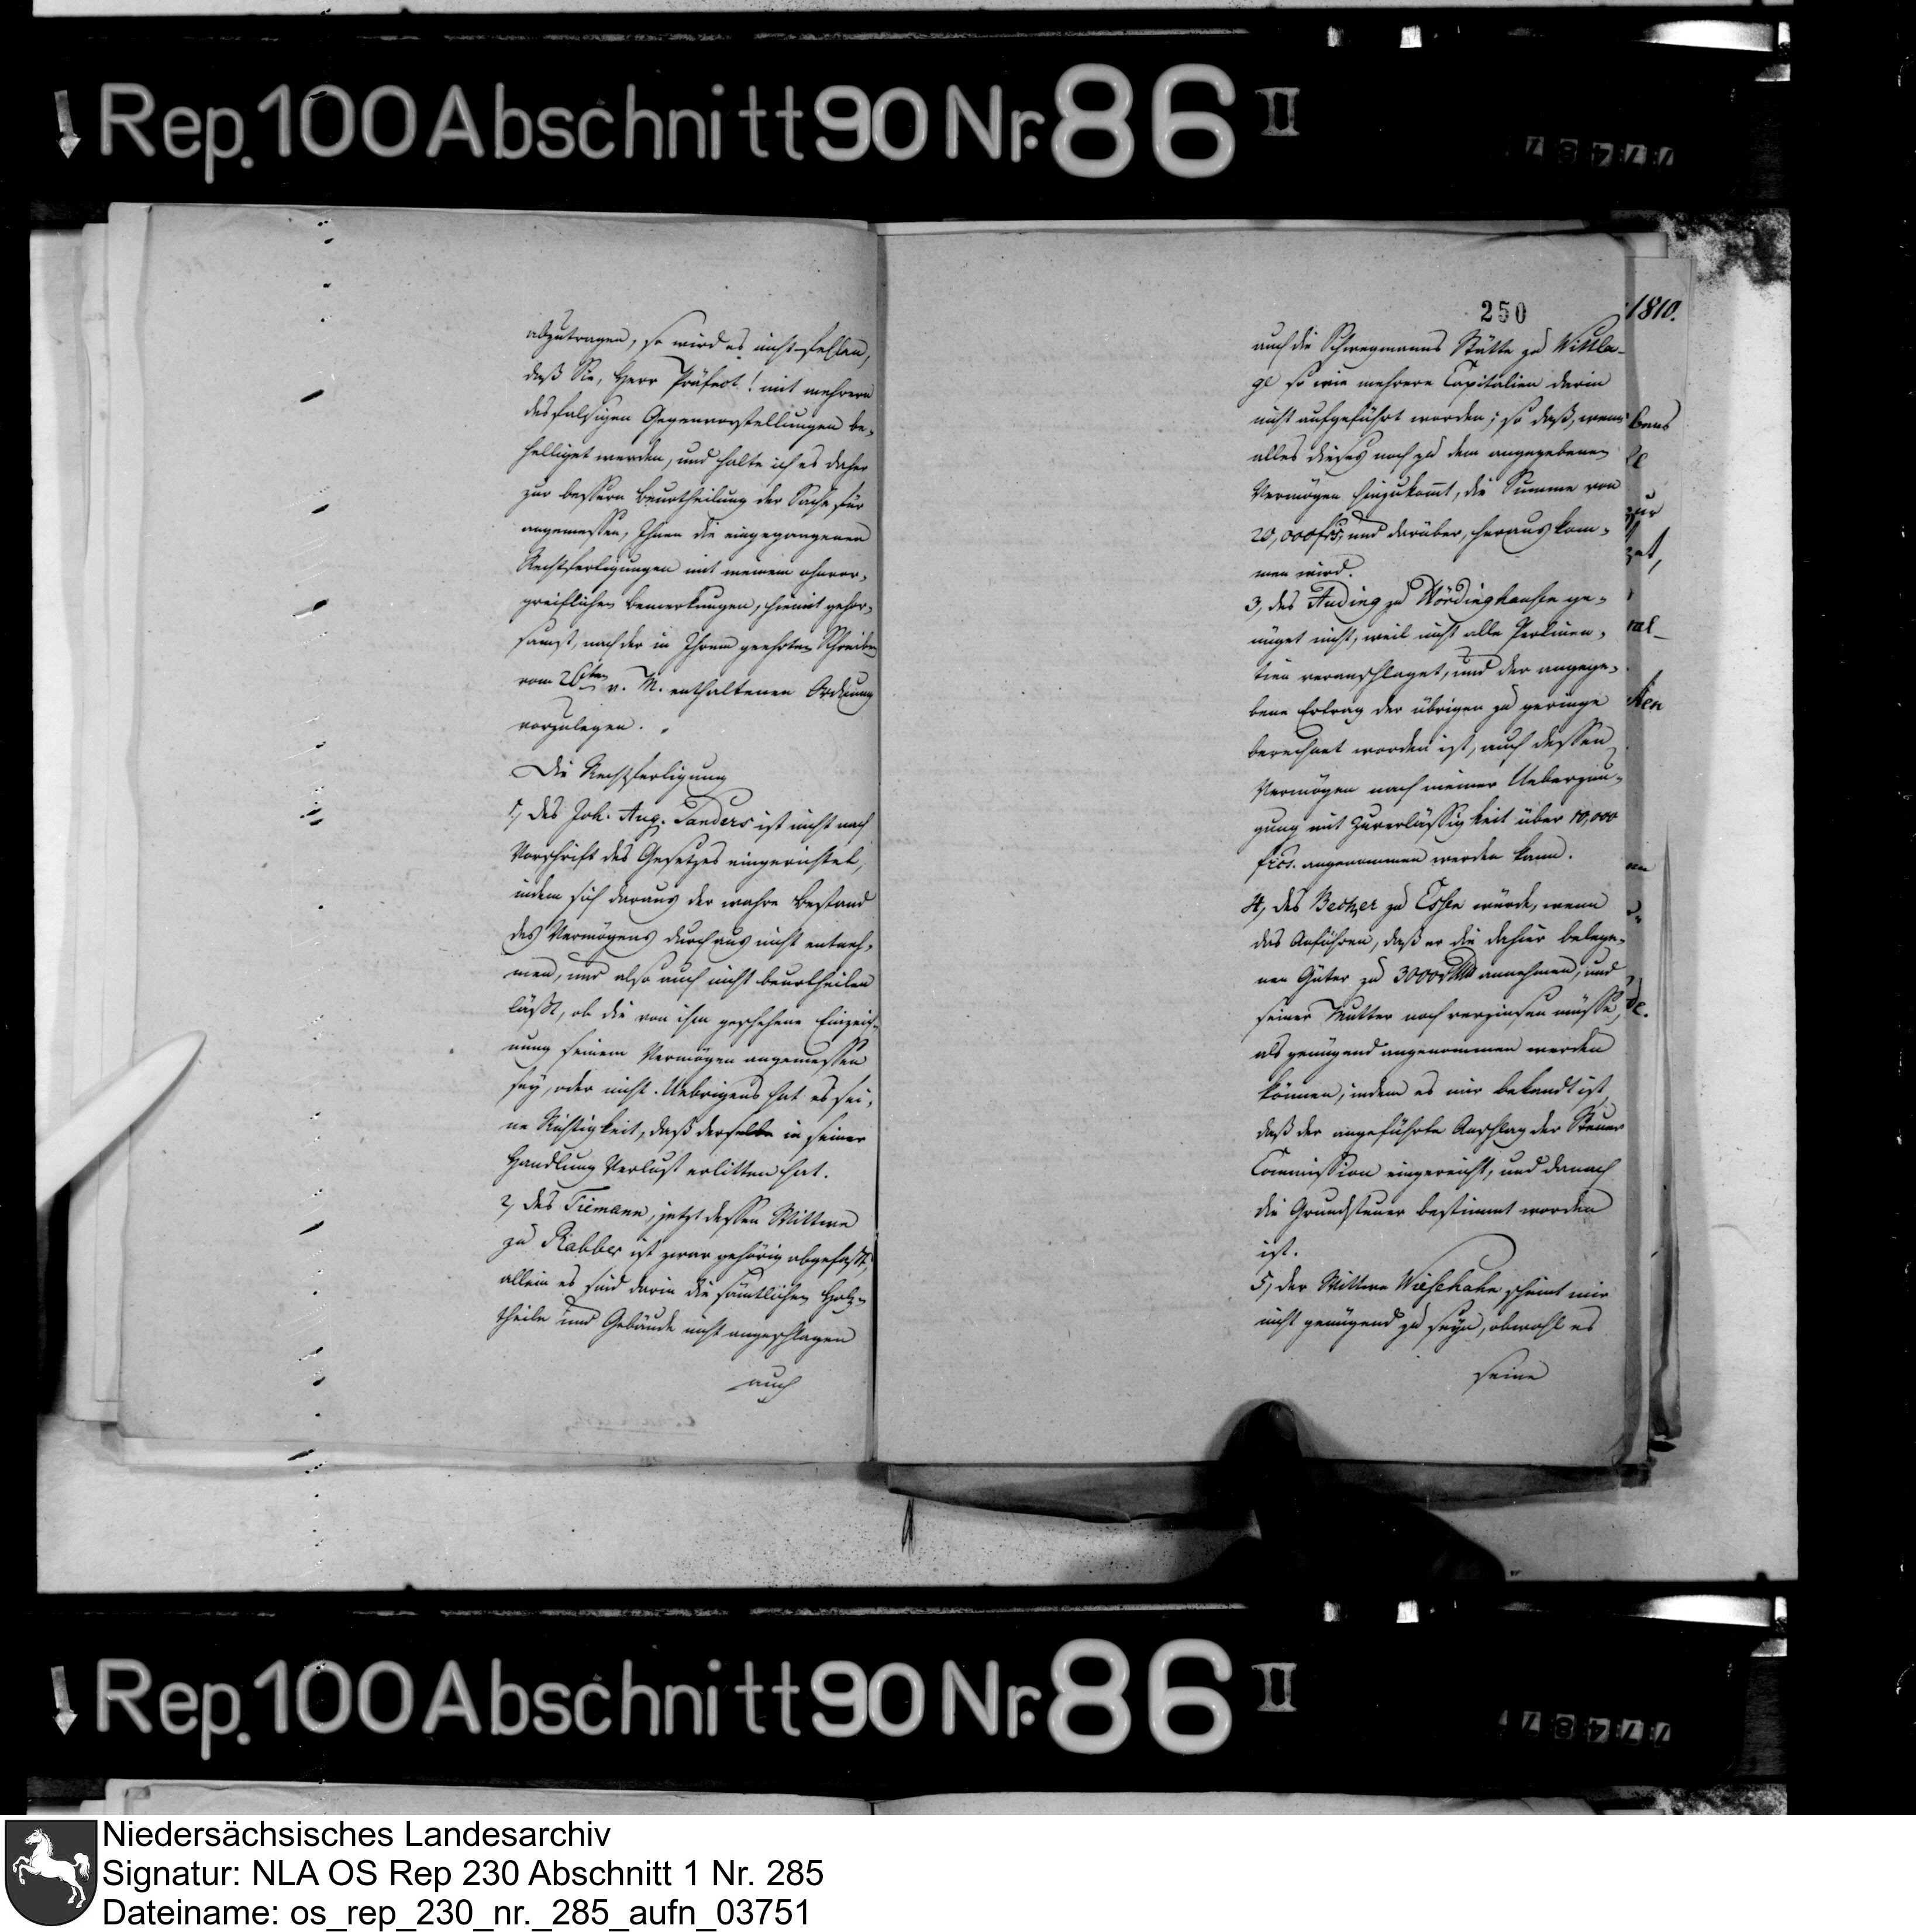 Rep. 100 Abschnitt 90 Nr. 86 II
77487
abzutragen, so wird es nicht fehlen,
daß Sie, Herr Präfect! mit mehrern
desfalsigen Gegenvorstellungen be-
helliget werden, und halte ich es daher
zur bessern Beurtheilung der Sache für
angemessen, Ihnen die eingegangenen
Rechtfertigungen mit meinem ohnvor-
greiflichen Bemerkungen, hiemit gehor-
samst, nach der in Ihrem geehrten Schreiben
vom 26ten v. M. enthaltenen Ordnung
vorzulegen.
Die Rechtfertigung
1, des Joh. Aug. Sanders ist nicht nach
Vorschrift des Gesetzes eingerichtet,
indem sich daraus der wahre Bestand
des Vermögens durchaus nicht entneh-
men, und also auch nicht beurtheilen
läßt, ob die von ihm geschehene Einzeich-
nung seinem Vermögen angemessen
sey, oder nicht. Uebrigens hat es sei-
ne Richtigkeit, daß derselbe in seiner
Handlung Verlust erlitten hat.
2, des Tiemann, jetzt dessen Wittwe
zu Rabber ist zwar gehörig abgefaßt,
allein es sind darin die sämtlichen Holz-
theile und Gebäude nicht angeschlagen
auch
250
auch die Schwegmanns Stätte zu Wittla-
ge so wie mehrere Capitalien darin
nicht aufgeführt worden; so daß, wenn
alles dieses noch zu dem angegebenen
Vermögen hinzukomt, die Summe von
20,000 frcs, und darüber, heraus kom-
men wird.
3, des Auding zu Wördinghausen ge-
nüget nicht, weil nicht alle Pertinen-
tien veranschlaget, und der angege-
bene Ertrag der übrigen zu geringe
berechnet worden ist, auch dessen
Vermögen nach meiner Ueberzeu-
gung mit Zuverlässigkeit über 10,000
frcs. angenommen werden kann.
4, des Becker zu Essen würde, wenn
das Anführen, daß er die dahier belege-
nen Güter zu 3000 annehmen, und
seiner Mutter noch verzinsen müsse,
als genügend angenommen werden
können, indem es mir bekandt ist,
daß der angeführte Anschlag der Steuer
Commission eingereicht, und danach
die Grundsteuer bestimmt worden
ist.
5, der Wittwe Wiesehahn scheint mir
nicht genügend zu seyn, obwohl es
seine
1810.
Rep. 100 Abschnitt 90 Nr. 86 II
77487
Niedersächsisches Landesarchiv
Signatur: NLA OS Rep 230 Abschnitt 1 Nr. 285
Dateiname: os_rep_230_nr._285_aufn_03751